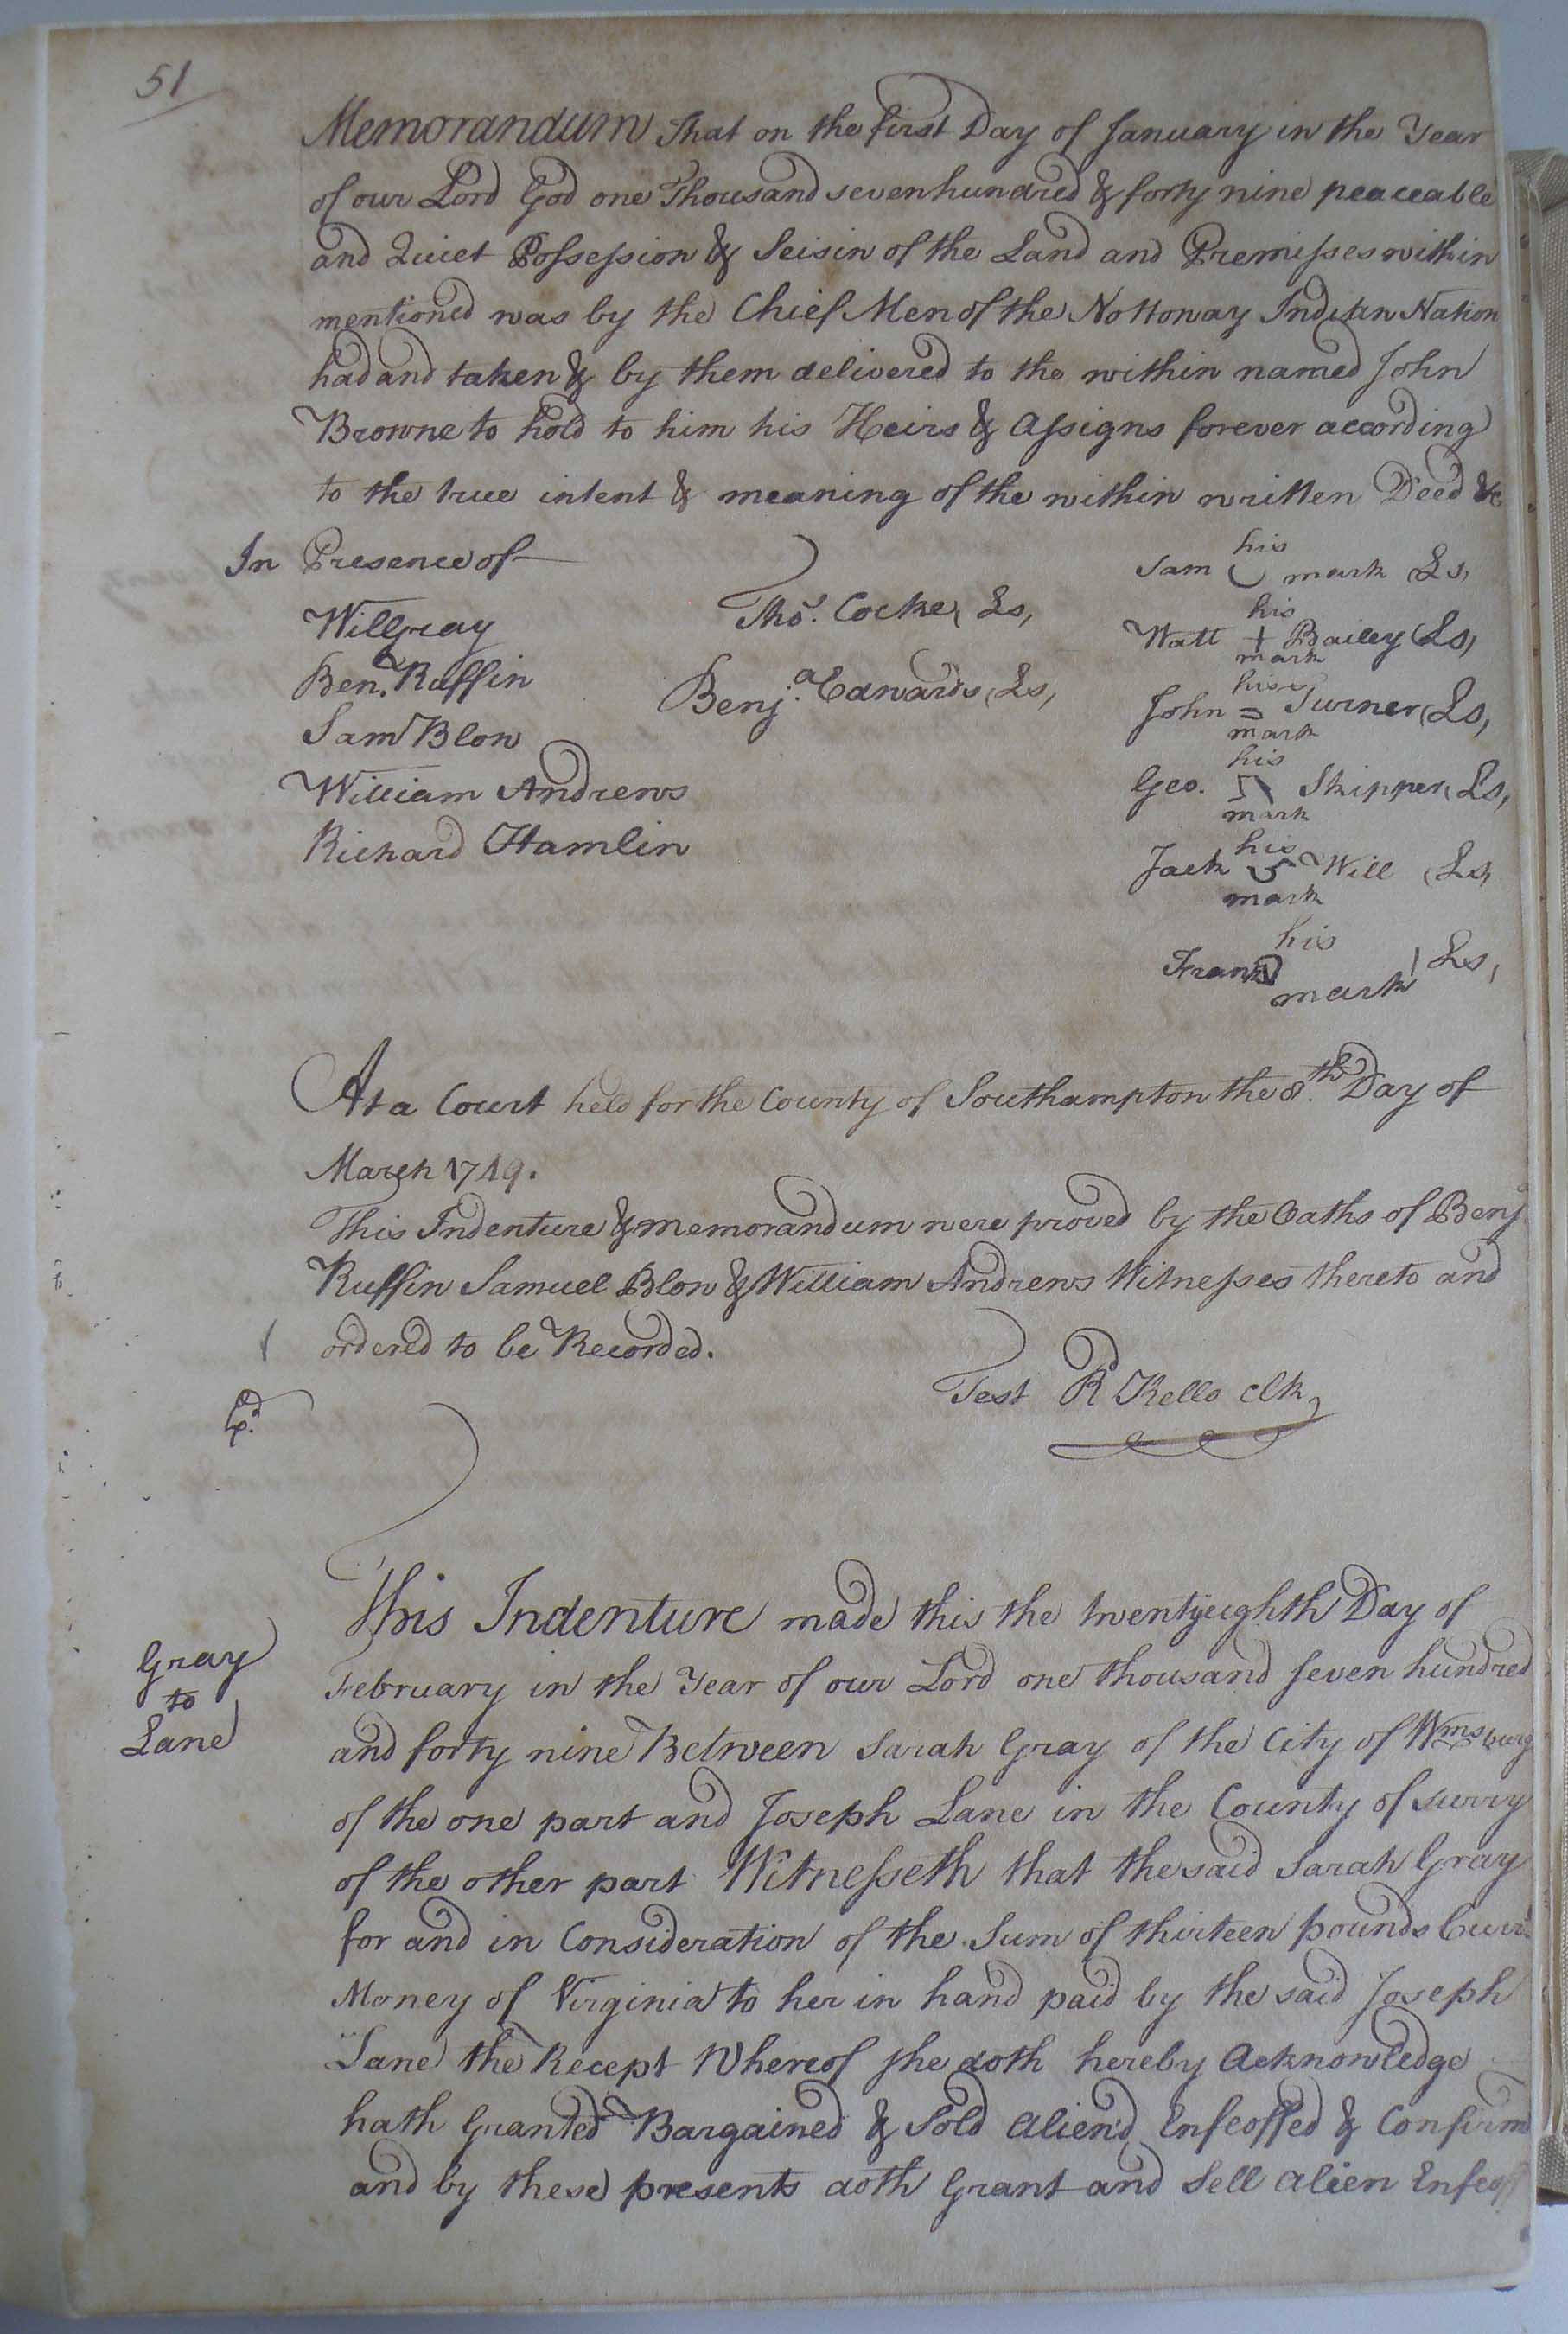 51
Memorandum That on the first Day of January in the Year
of our Lord God one Thousand seven hundred & forty nine peaceable
and Quiet Possession & Seisin of the Land and Premisses within
mentioned was by the Chief Men of the Nottoway Indian Nation
had and taken & by them delivered to the within named John
Browne to hold to him his Heirs & Assigns forever according
to the true intent & meaning of the within written Deed &c
In Presence of
Will Gray
Ben. Ruffin
Sam Blow
William Andrews
Richard Hamlin
Thos. Cocke, Ls,
Benja. Edwards, Ls,
his
Sam mark Ls,
his
Watt + Bailey (Ls,
mark
his
John = Turner (Ls,
mark
his
Geo. Skipper, Ls,
mark
his
Jack Will (Ls,
mark
his
Frank Ls,
mark
At a Court held for the County of Southampton the 8.th Day of
March 1749.
This Indenture & memorandum were proved by the Oaths of Benj
Ruffin Samuel Blow & William Andrews Witnesses thereto and
ordered to be Recorded.
Test R Kello Clk
Gray
to
Lane
This Indenture made this the twentyeighth Day of
February in the Year of our Lord one thousand seven hundred
and forty nine Between Sarah Gray of the City of Wmsburg
of the one part and Joseph Lane in the County of surry
of the other part Witnesseth that the said Sarah Gray
for and in Consideration of the Sum of thirteen pounds Curr.
Money of Virginia to her in hand paid by the said Joseph
Lane the Recept Whereof she doth hereby Acknowledge
hath Granted Bargained & Sold Alien'd Enfeoffed & Confirmd
and by these presents doth Grant and Sell Alien Enfeoff